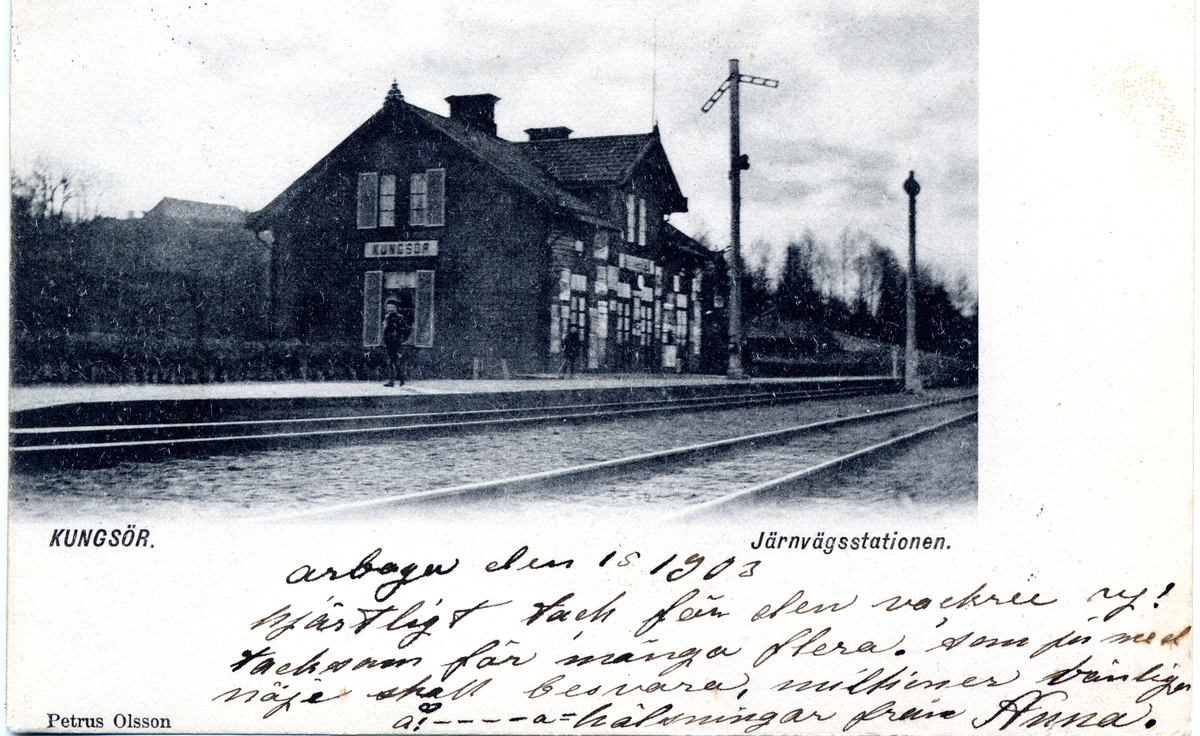 KUNGSÖR
KUNGSÖR.
Järnvägsstationen.
arboga den 15 1903
hjärtligt tack för den vackree vy!
tacksam för många flera. som ju med
nöje skall besvara, miltioner vänliga
å! - - - - a = hälsningar från Anna.
Petrus Olsson